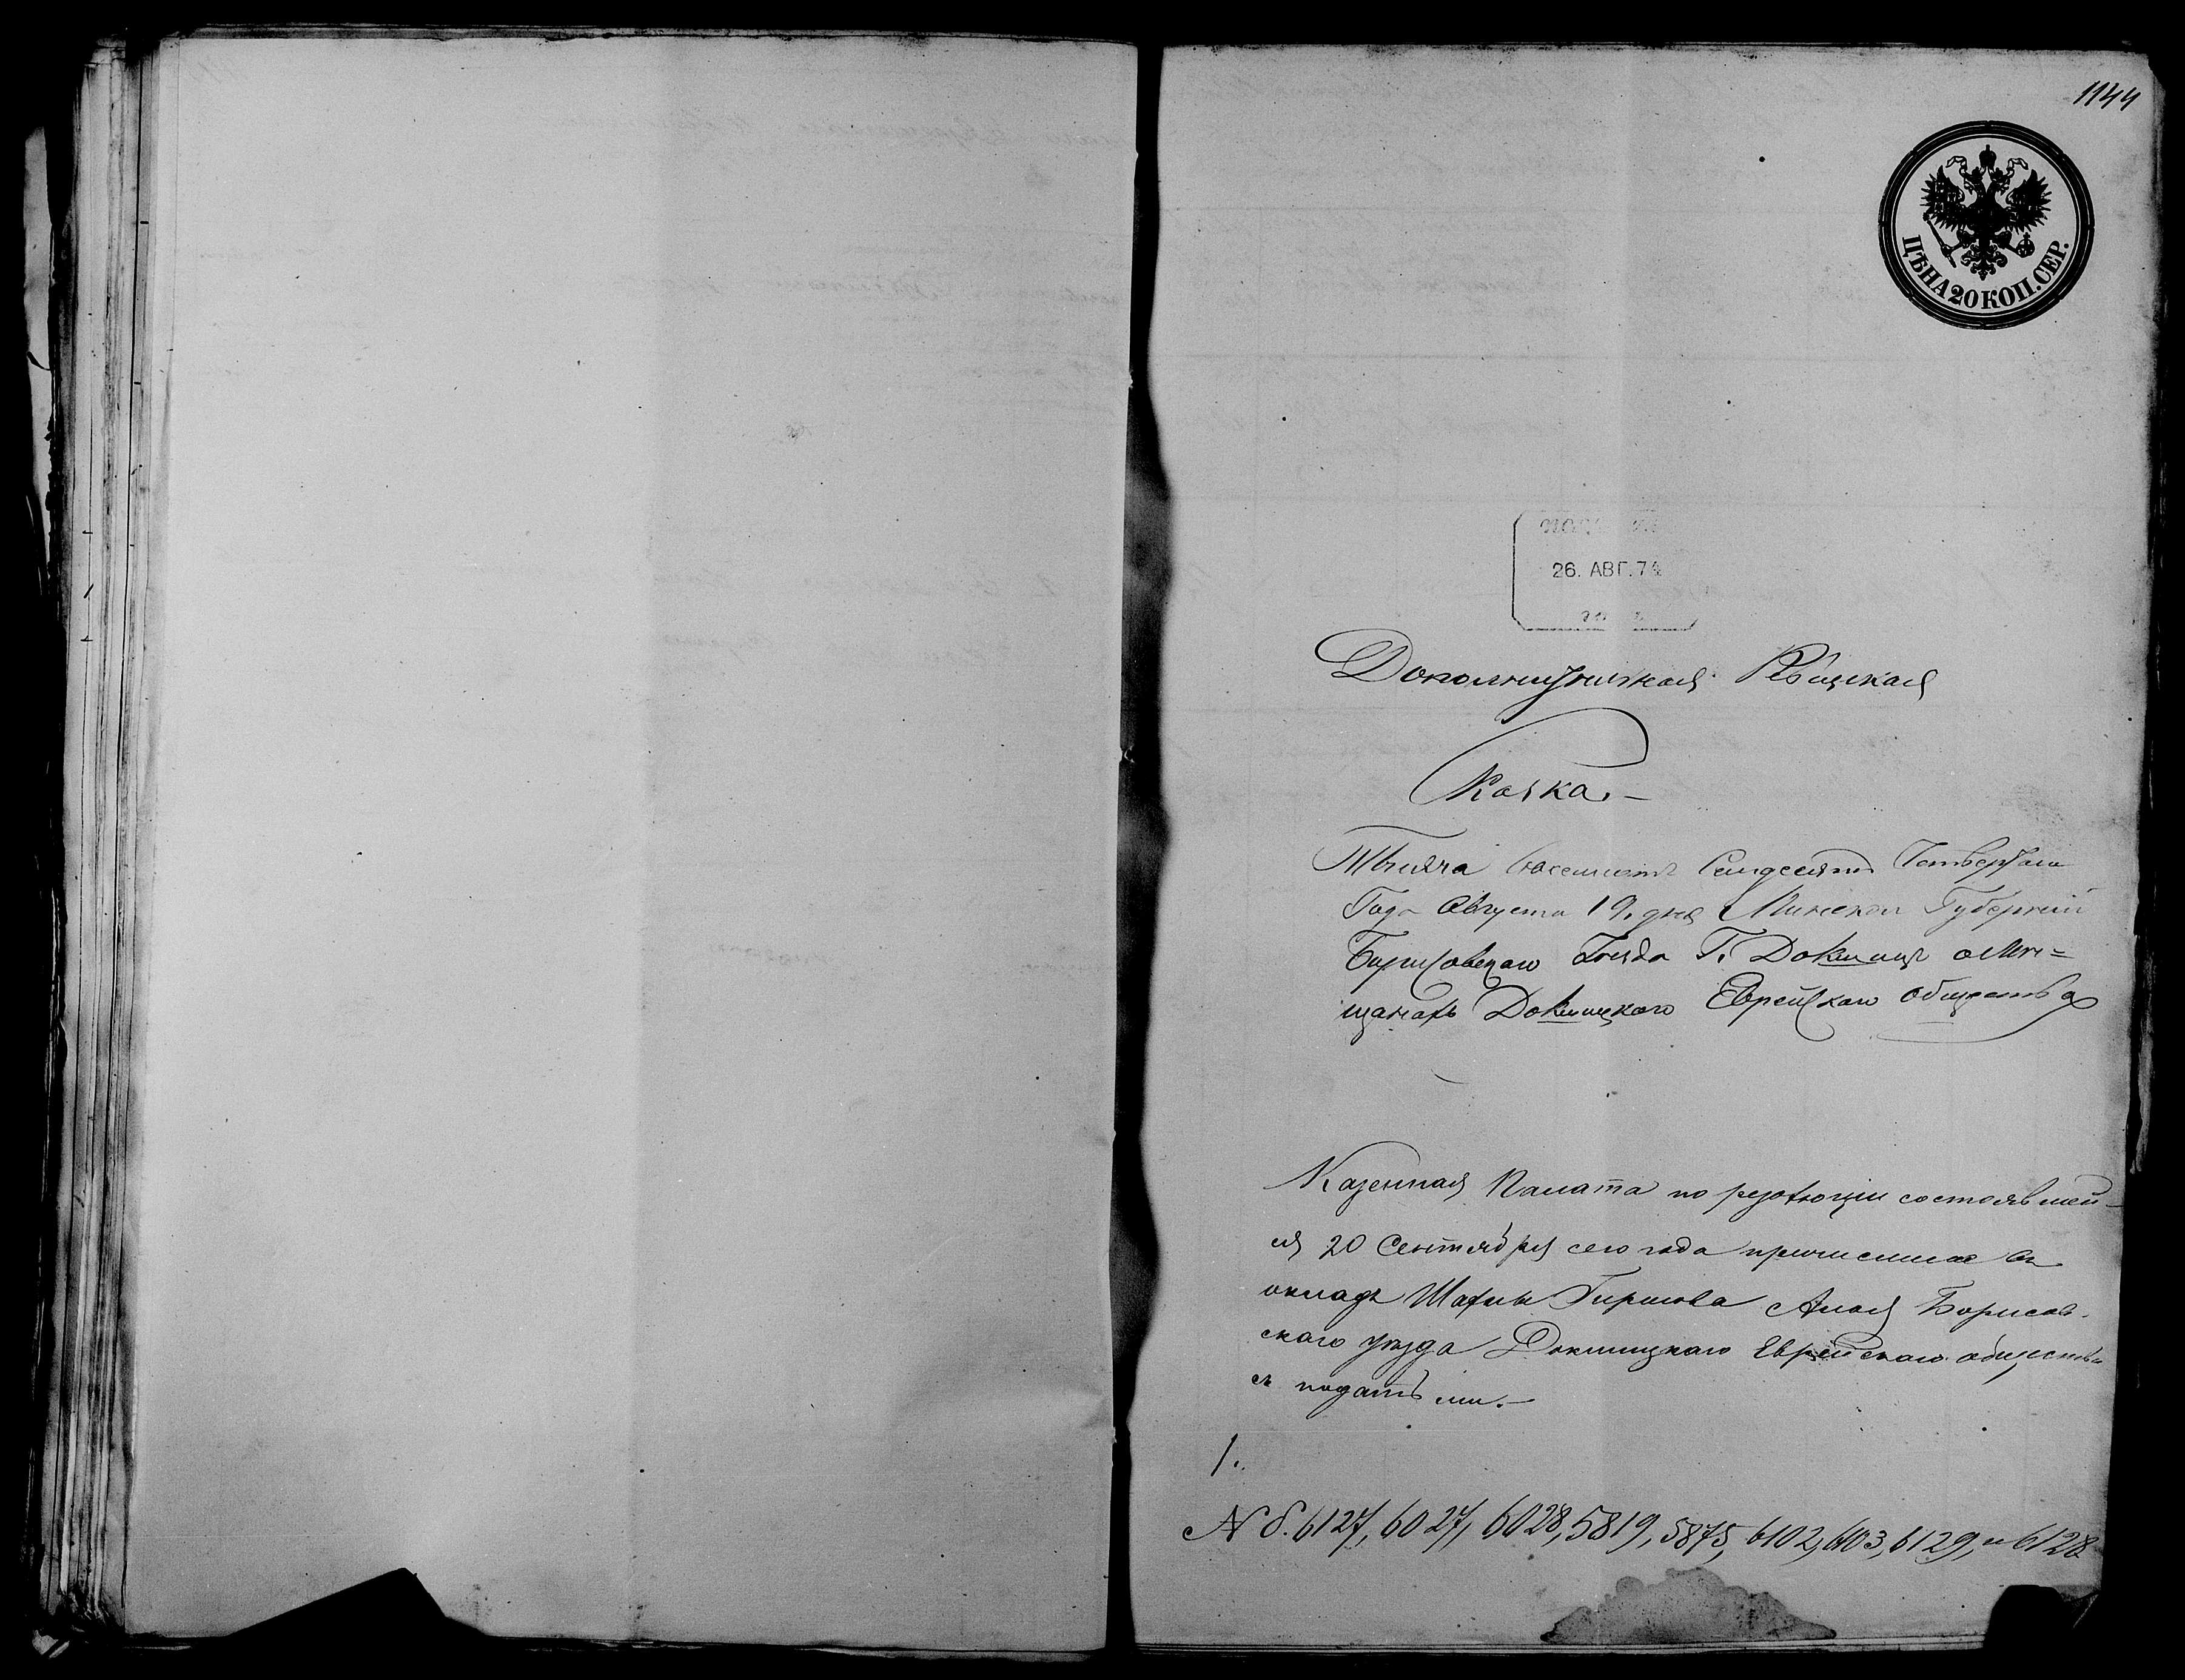 1144
ЦѢНА 20 КОП. СЕР.
26. АВГ. 74
Дополнительная Ревизская
Сказка. —
Тысяча восемьсотъ семдесятъ четвертаго
Года Августа 19. дня Минской Губерніи
Борисовскаго Уезда Г. Докшицъ о Мѣ=
щанахъ Докшицкого Еврейскаго общества
Казенная Палата по резолюціи состоявшей-
ся 20 Сентября сего года причислила въ
окладъ Гиршова Борисов-
скаго уѣзда Докшицкаго Еврейскаго общества
съ податьми. —
1.
№ 6127, 6027, 6028, 5819, 5875, 6102, 6103, 6129, и 6128